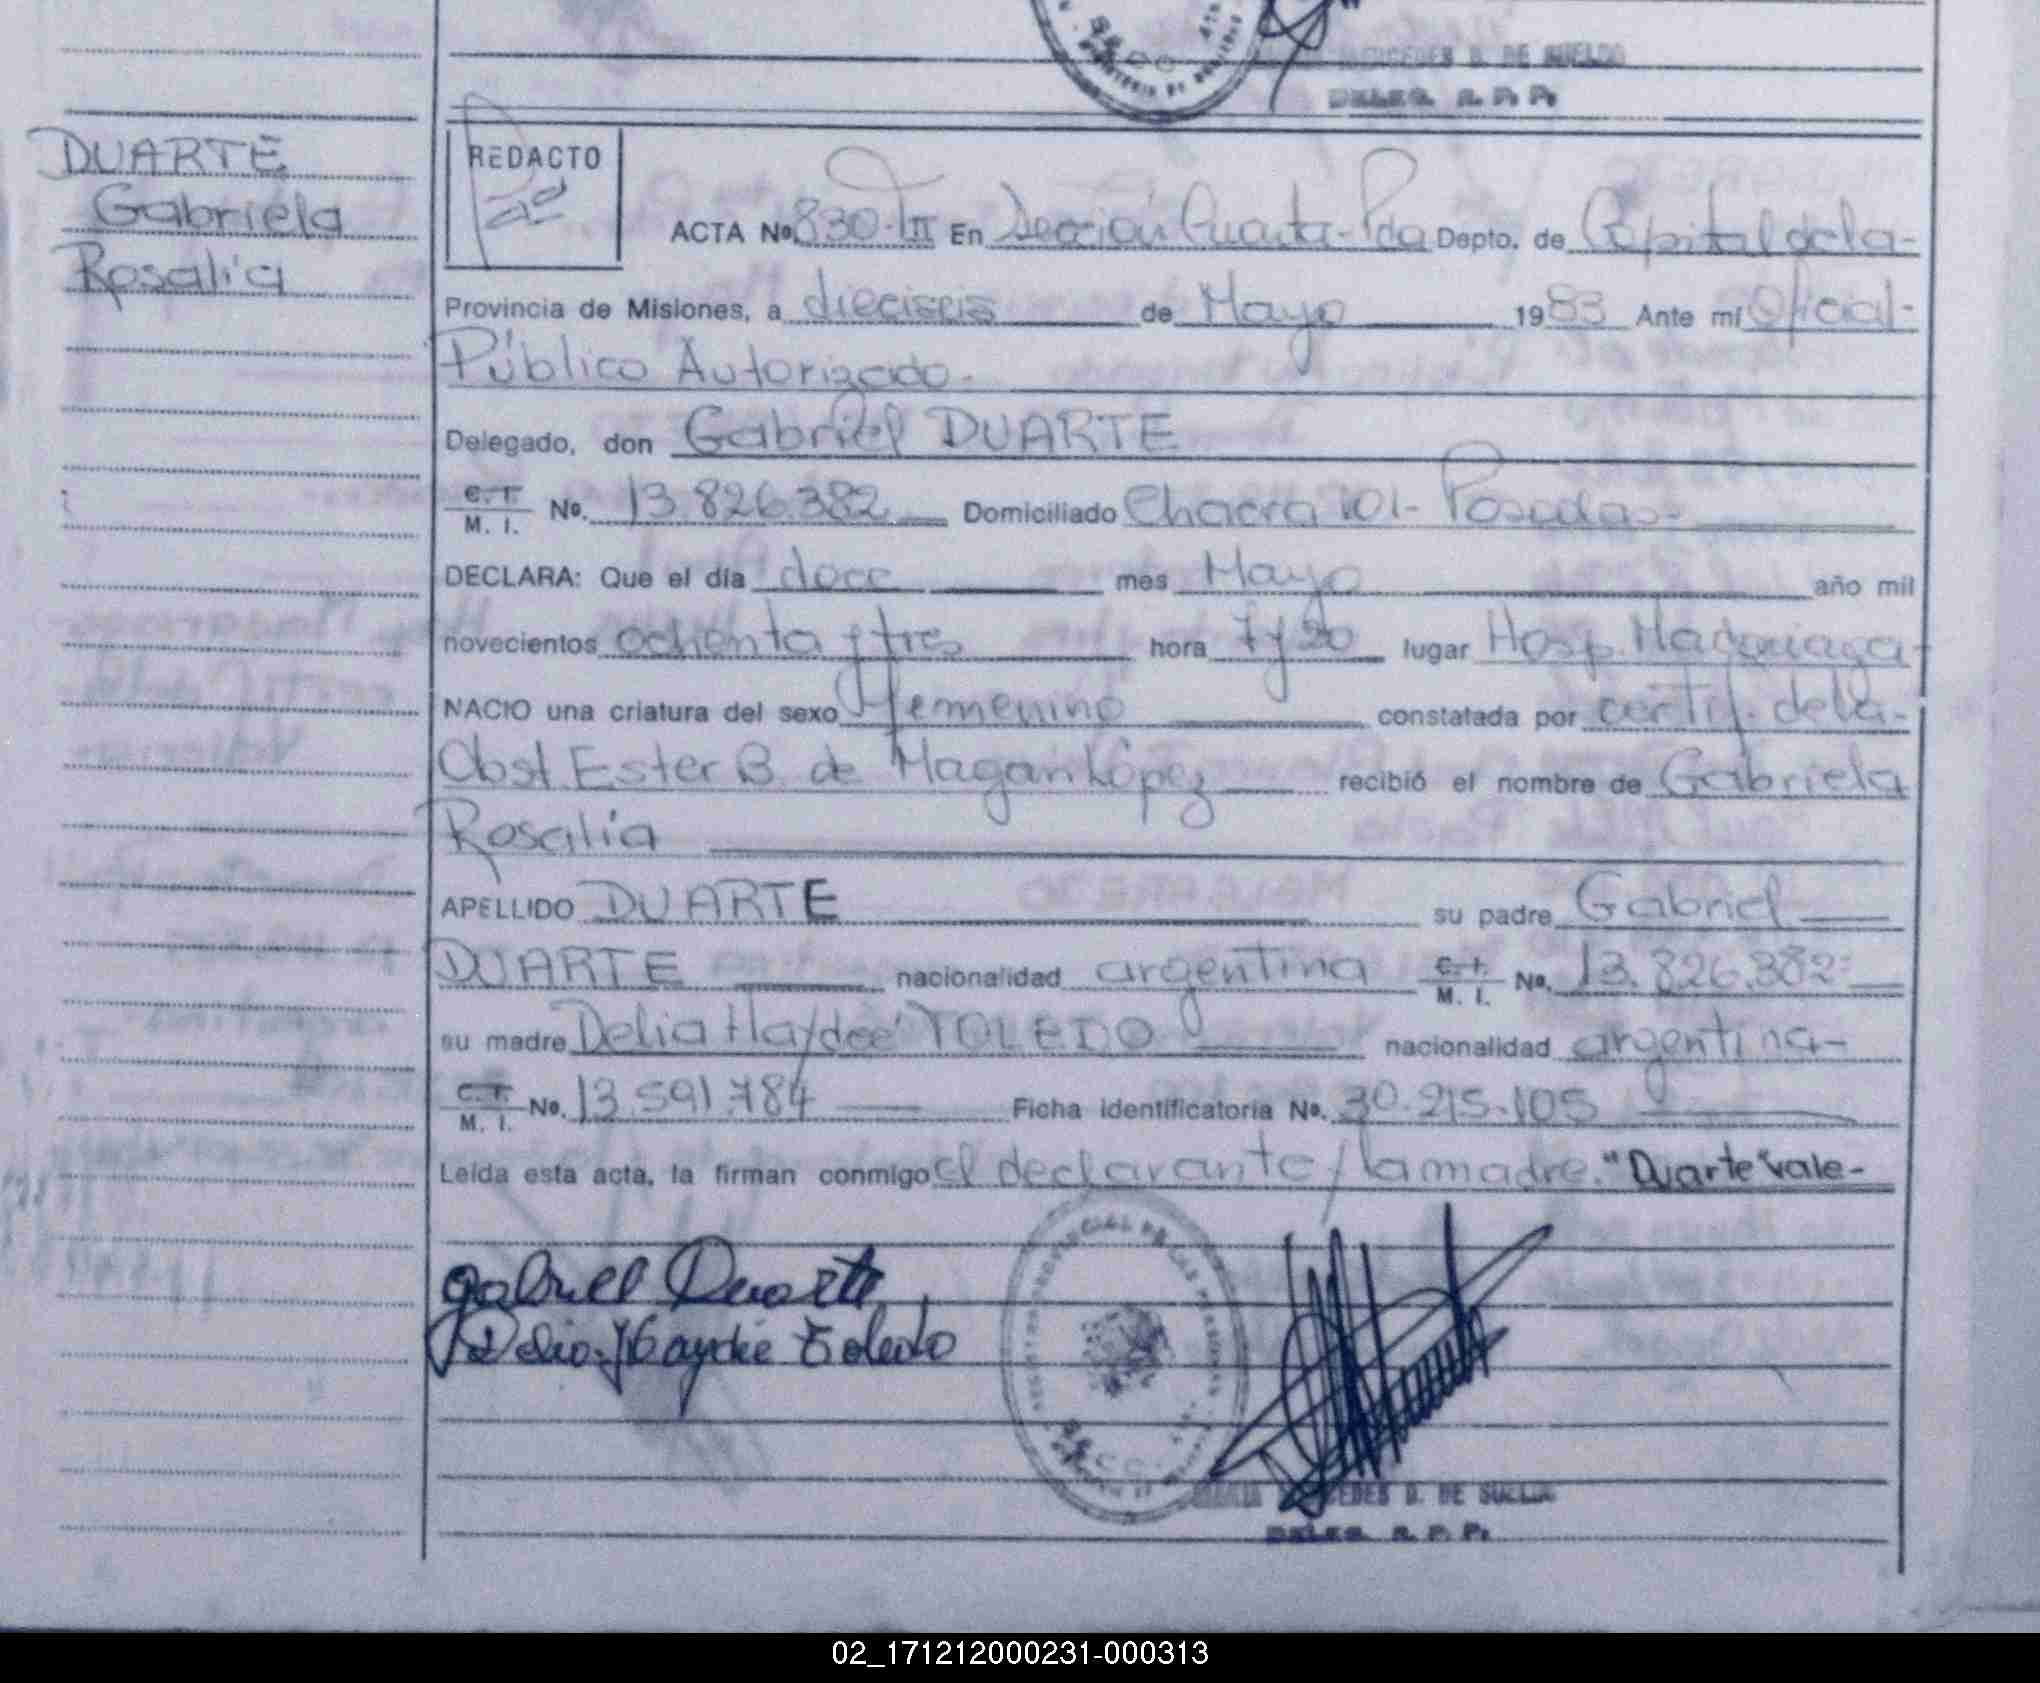 DE SUELDO
DELEG. R. P. P.
DUARTE
Gabriela
Rosalia
REDACTO
ACTA Nº 830-III En Sección Cuarta-Pda Depto. de Capital de la-
Provincia de Misiones, a dieciseis de Mayo 1983 Ante mí Oficial-
Público Autorizado-
Delegado, don Gabriel DUARTE
C. I.
M. I. Nº. 13.826.382 Domiciliado Chacra 101- Posadas-
DECLARA: Que el día doce mes Mayo año mil
novecientos ochenta y tres hora 7 y 20 lugar Hosp. Madariaga-
NACIO una criatura del sexo femenino constatada por certif. de la-
Obst. Ester B. de Magan López recibió el nombre de Gabriela
Rosalía
APELLIDO DUARTE su padre Gabriel
DUARTE nacionalidad argentina C. I. M. I. Nº. 13.826.382
su madre Delia Haydeé TOLEDO nacionalidad argentina-
C. I.
M. I. Nº. 13.591.784 Ficha identificatoria Nº. 30.215.105
Leída esta acta, la firman conmigo el declarante y la madre. "Duarte" vale-
gabriel Duarte
Delia Haydée Toledo
D. DE SUELDO
DELEG. R. P. P.
02_171212000231-000313